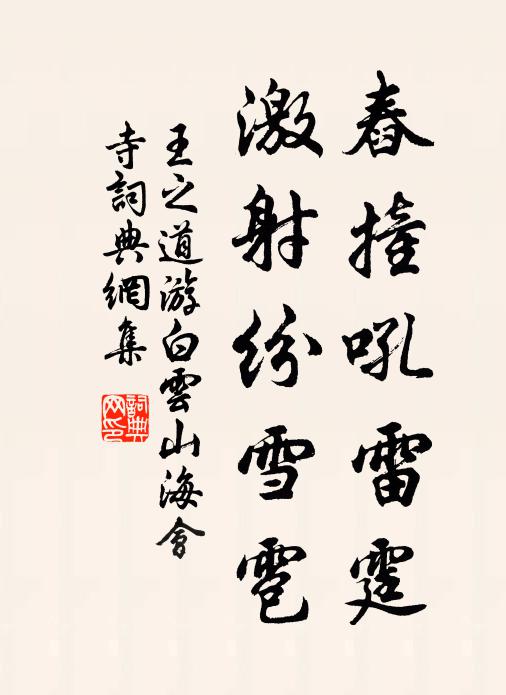 舂撞吼雷霆
激射紛雪雹
王之道游白雲山海會
寺詞典網集
詞典
网印